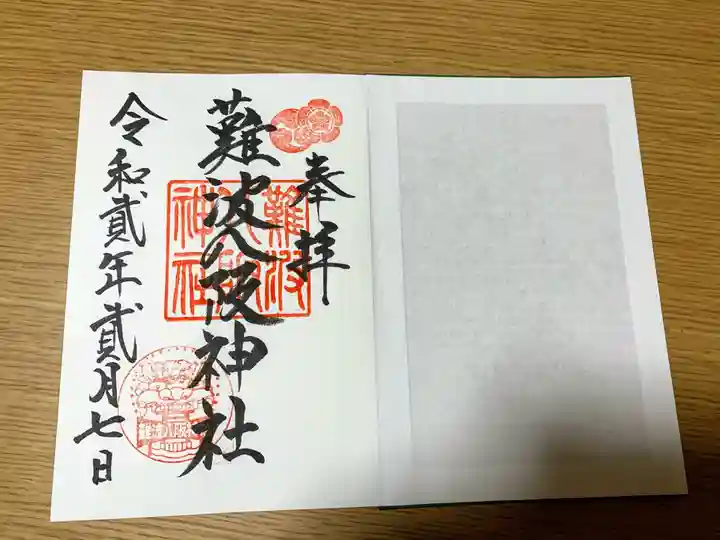 奉拝
難波八阪神社
令和貳年貳月七日
難波八阪神社